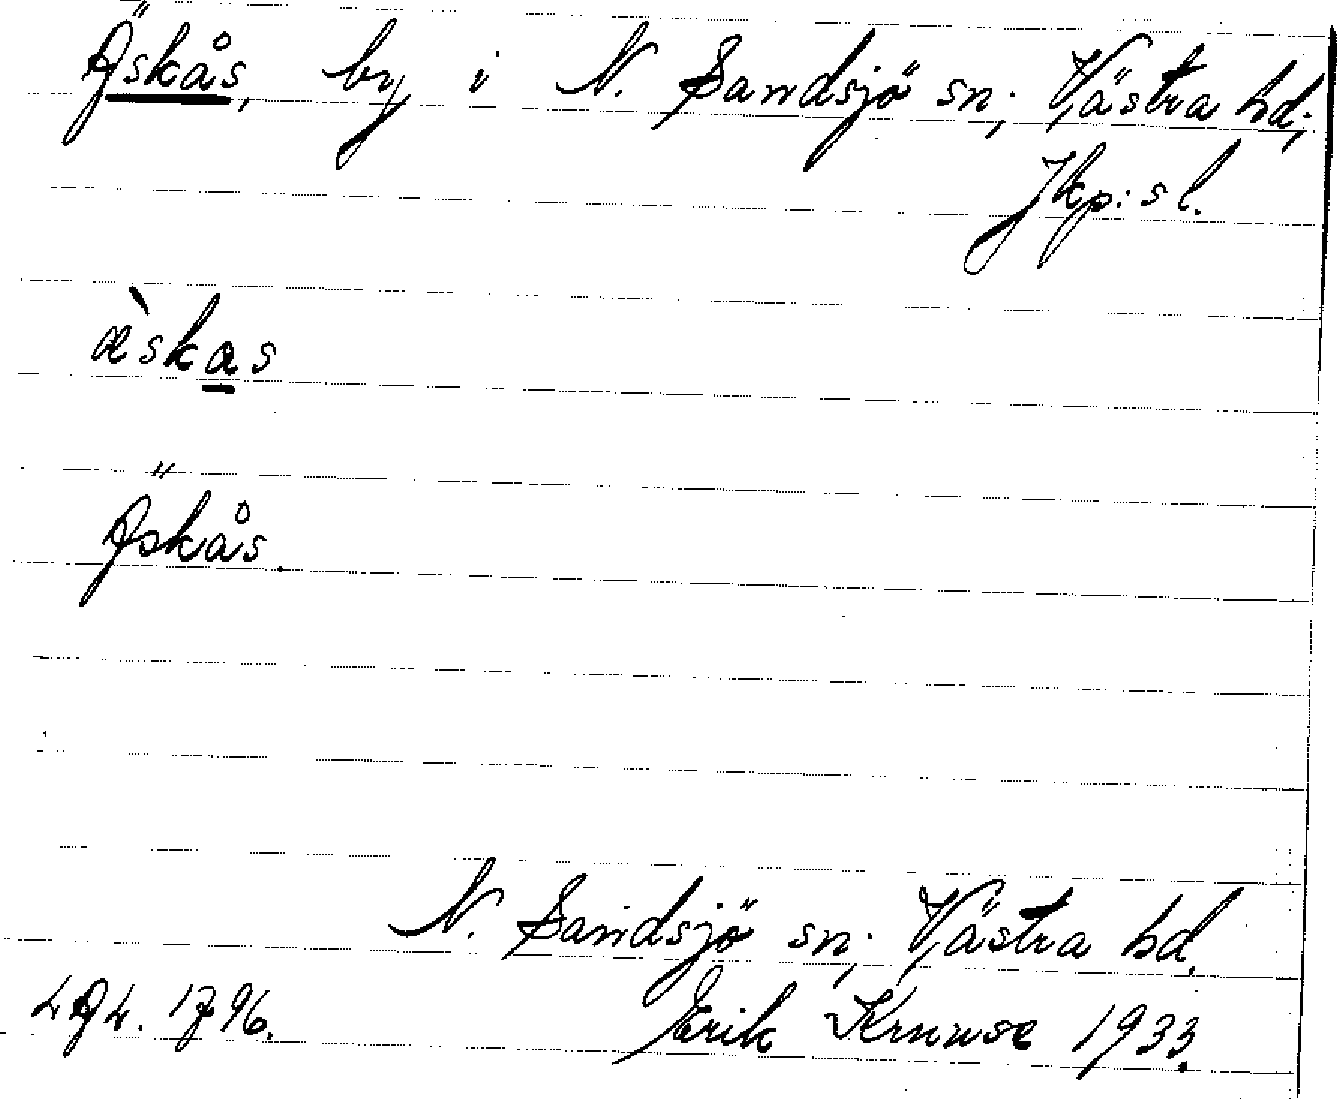 Äskås, by i N. Sandsjö sn; Västra hd;
Jkp:s l.
æ̀skas
Äskås.
N. Sandsjö sn; Västra hd.
Erik Kruuse 1933.